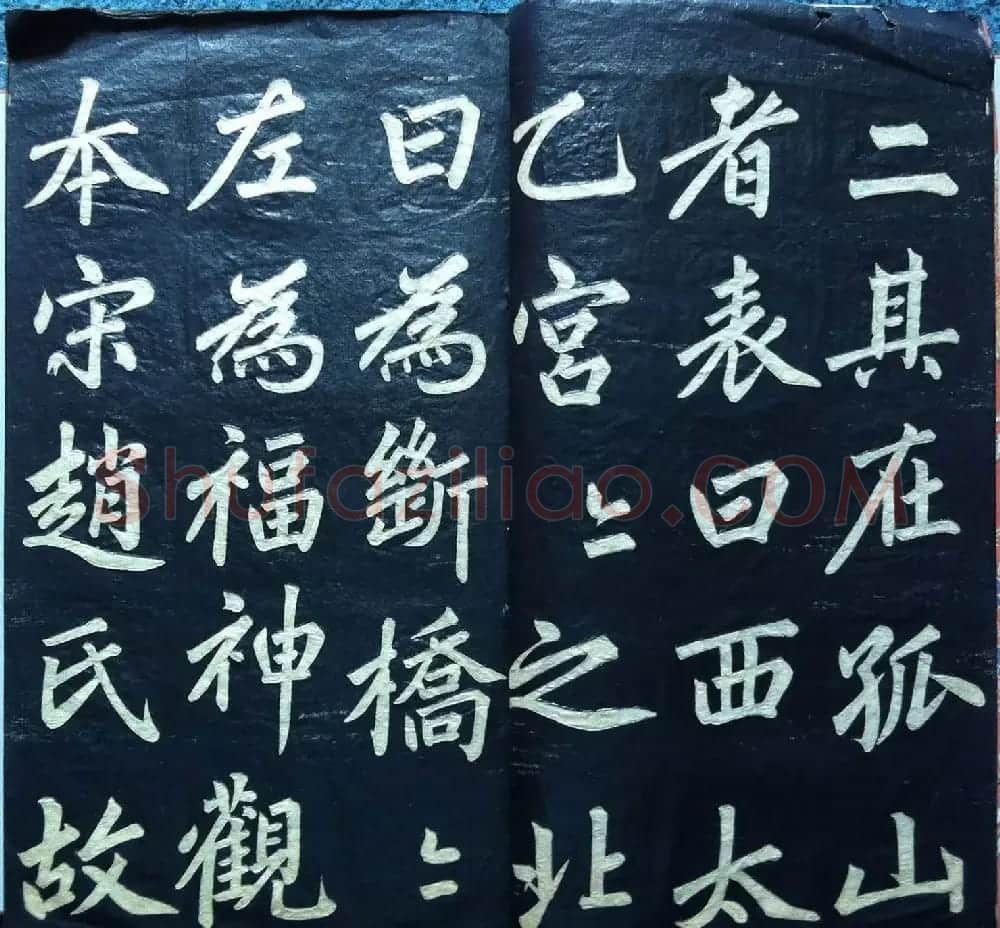 二其在孤山
者表曰西太
乙宮〻之北
曰為斷橋〻
左為福神觀
本宋趙氏故
Shufaziliao.COM